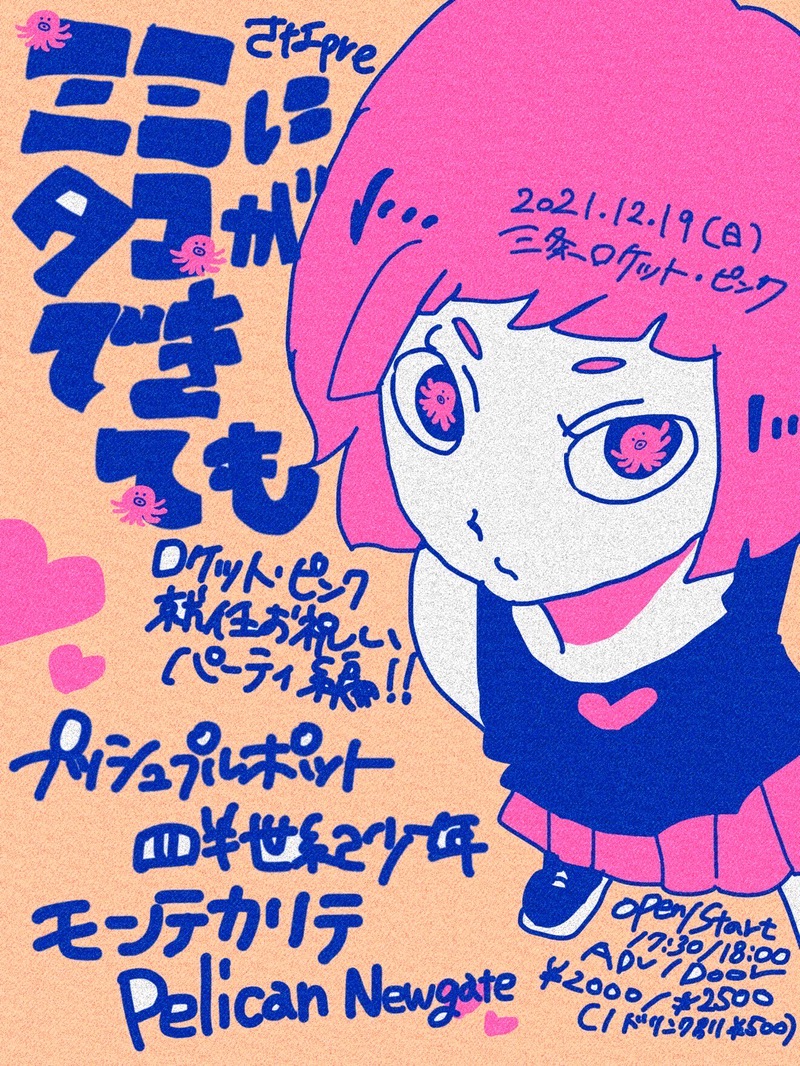 pre
ミミに
タコが
でき
ても
2021.12.19(日)
三条ロケット・ピンク
ロケット・ピンク
就任お祝い
パーティ編!!
プッシュプルポット
四半世紀少年
モンテカリテ
Pelican Newgate
open/Start
17:30/18:00
ADV/Door
¥2000/¥2500
(1ドリンク別¥500)